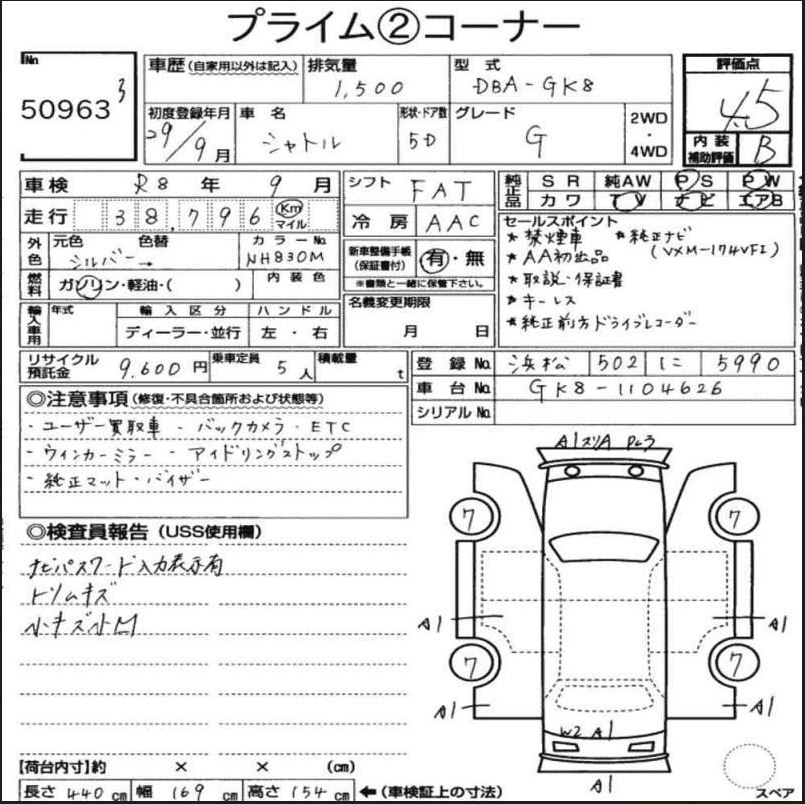 プライム②コーナー
No. 50963 3
車歴(自家用以外は記入)
排気量 1,500
型式 DBA-GK8
評価点 4.5
初度登録年月 29/9月
車名 シャトル
形状・ドア数 5D
グレード G
2WD・4WD
内装補助評価 B
車検 R8年 9月
シフト FAT
純正品 SR 純AW PS PW
カワ TV ナビ エアB
走行 38,796 Km マイル
冷房 AAC
セールスポイント
★禁煙車 ★純正ナビ
★AA初出品 (VXM-174VFI)
★取説・保証書
★キーレス
★純正前方ドライブレコーダー
外色 元色 シルバー→ 色替
カラーNo. NH830M
新車整備手帳(保証書付) 有・無
※書類と一緒に保管下さい。
燃料 ガソリン・軽油・( )
内装色
名義変更期限 月 日
輸入車用 年式
輸入区分 ディーラー・並行
ハンドル 左・右
リサイクル預託金 9,600円
乗車定員 5人
積載量 t
登録No. 浜松 502 に 5990
車台No. GK8-1104626
シリアルNo.
◎注意事項(修復・不具合箇所および状態等)
・ユーザー買取車 ・バックカメラ・ETC
・ウィンカーミラー ・アイドリングストップ
・純正マット・バイザー
◎検査員報告(USS使用欄)
ナビパスワード入力表示有
トリムキズ
小キズ小凹
A1スリA
7 7
A1 A1
7 7
A1 A1
W2 A1
A1
スペア
【荷台内寸】約 × × (cm)
長さ 440cm 幅 169cm 高さ 154cm ←(車検証上の寸法)